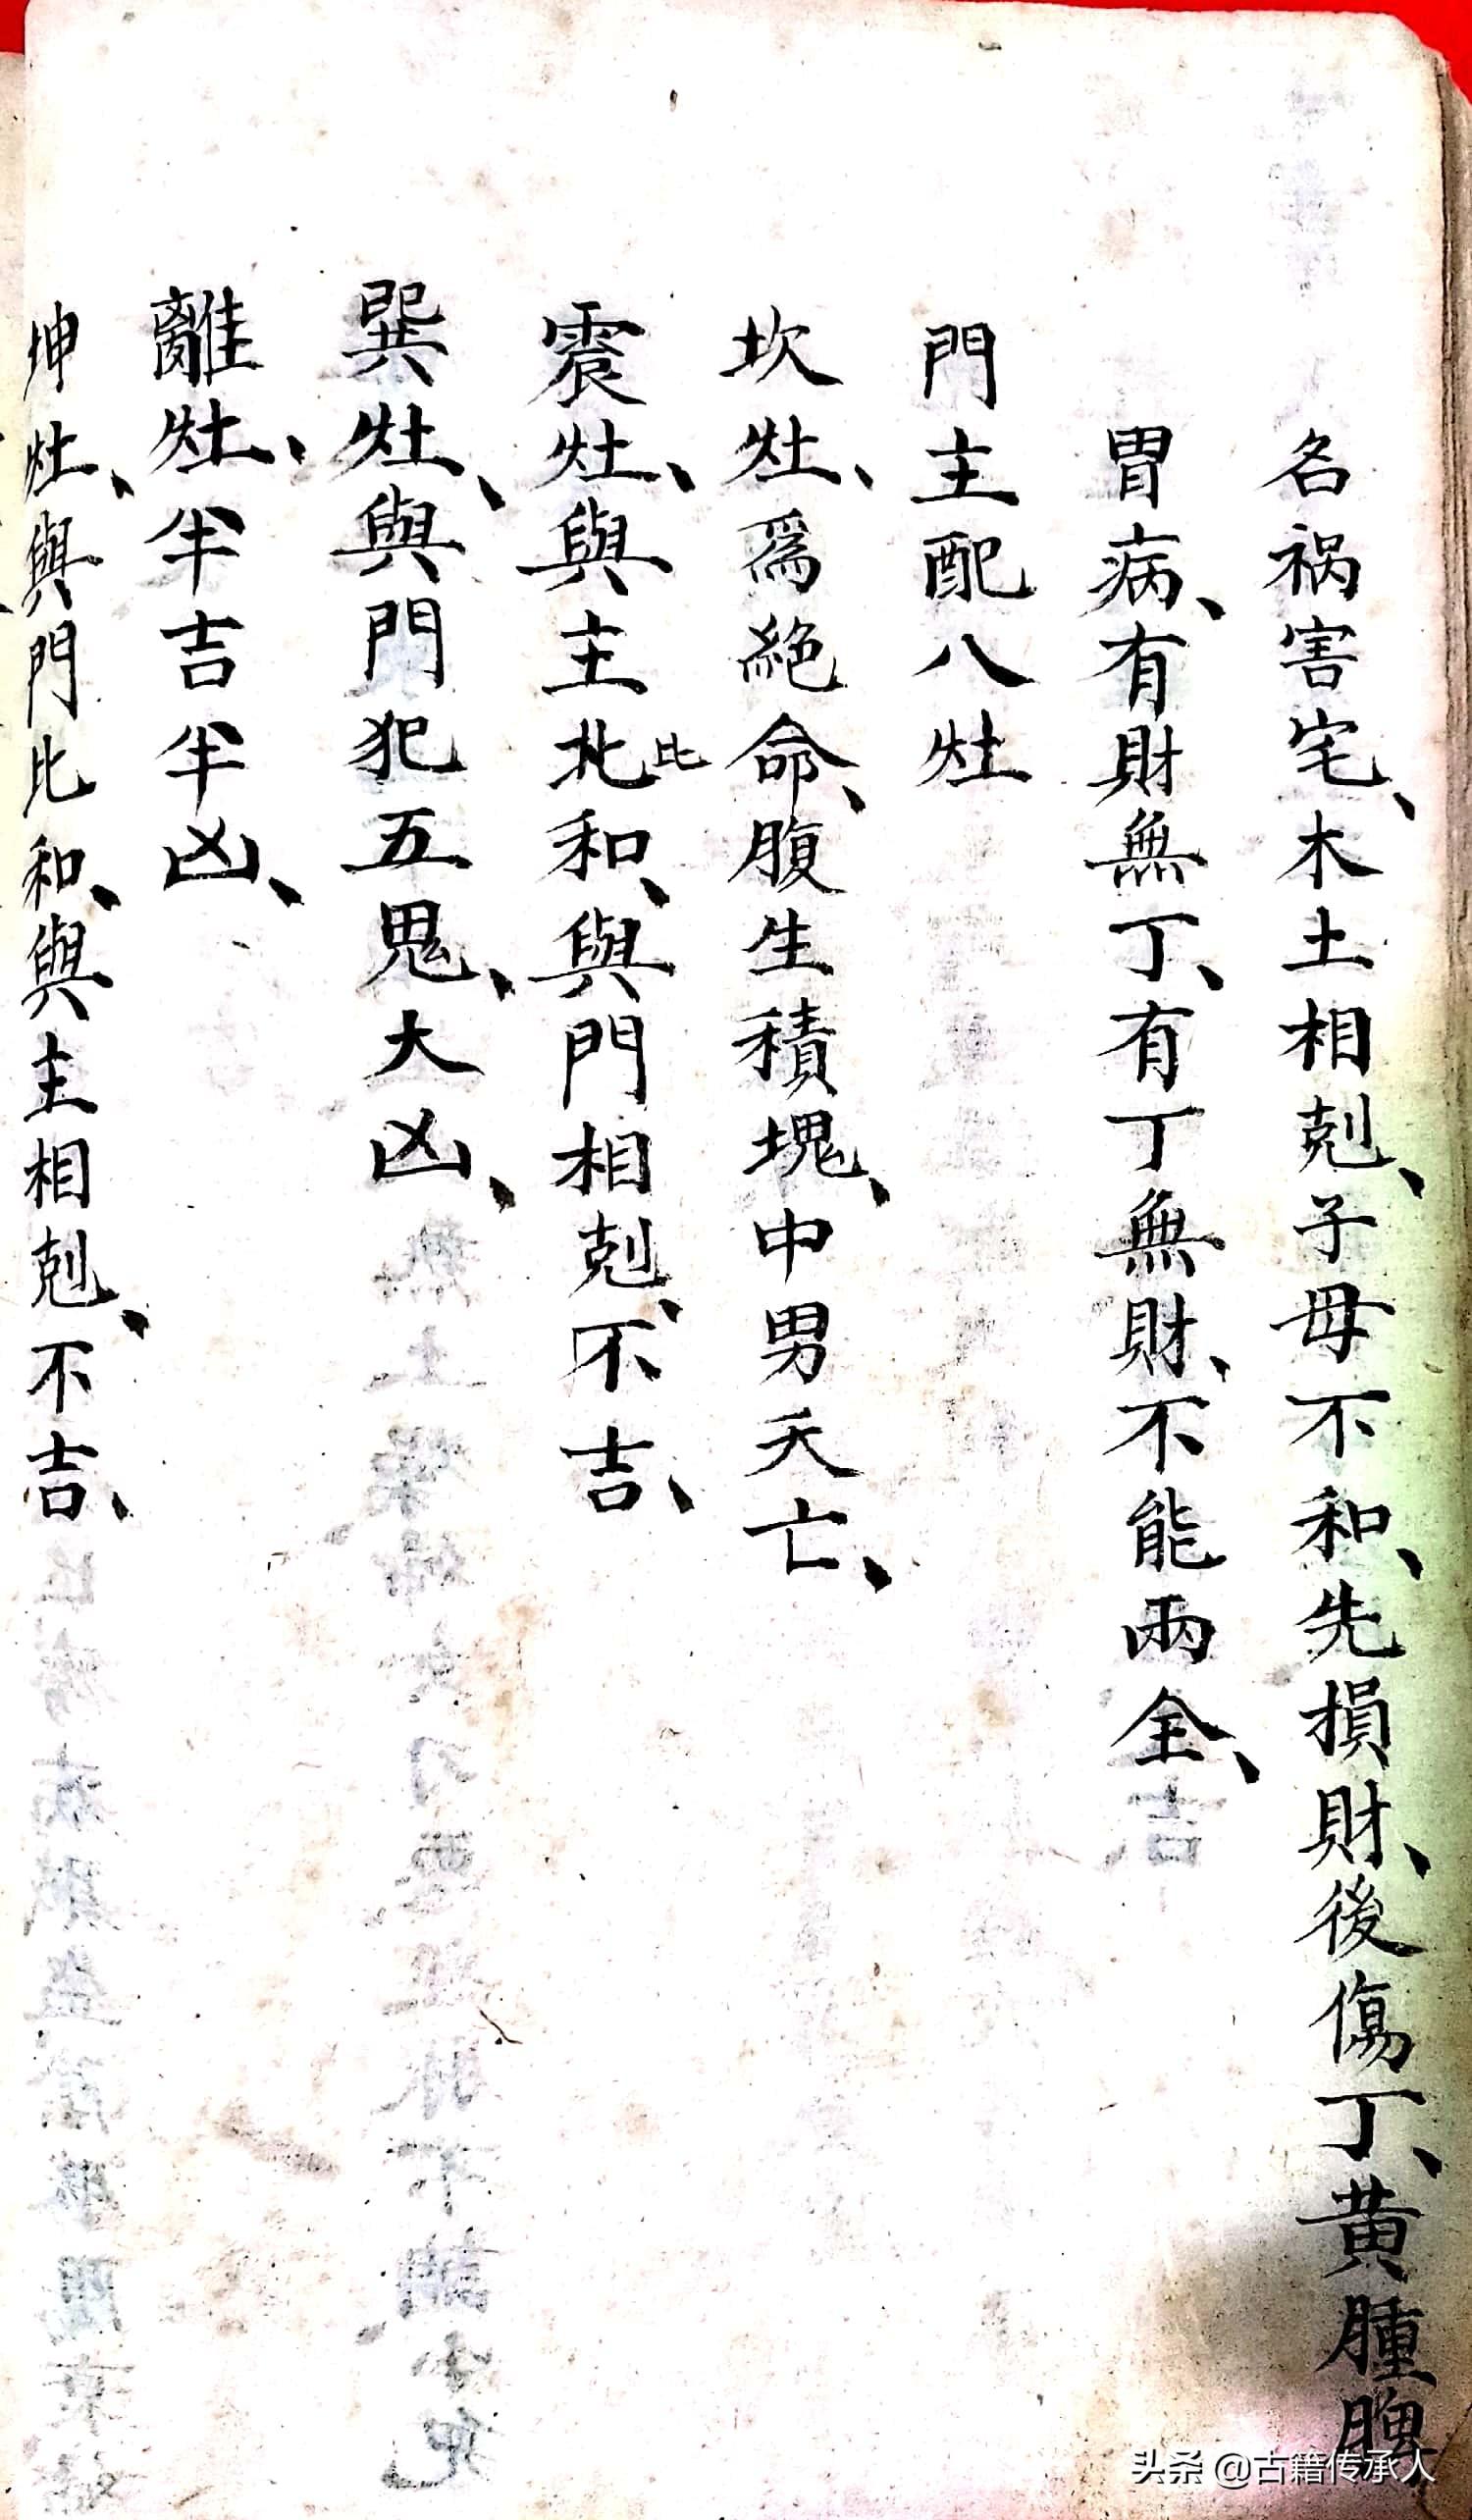 名祸害宅、木土相剋、子母不和、先損財、後傷丁、黄腫脾
胃病、有財無丁、有丁無財、不能兩全、
門主配八灶
坎灶、爲絶命、腹生積塊、中男夭亡、
震灶、與主北比和、與門相剋、不吉、
巽灶、與門犯五鬼、大凶、
離灶、半吉半凶、
坤灶、與門比和、與主相剋、不吉、
头条 @古籍传承人